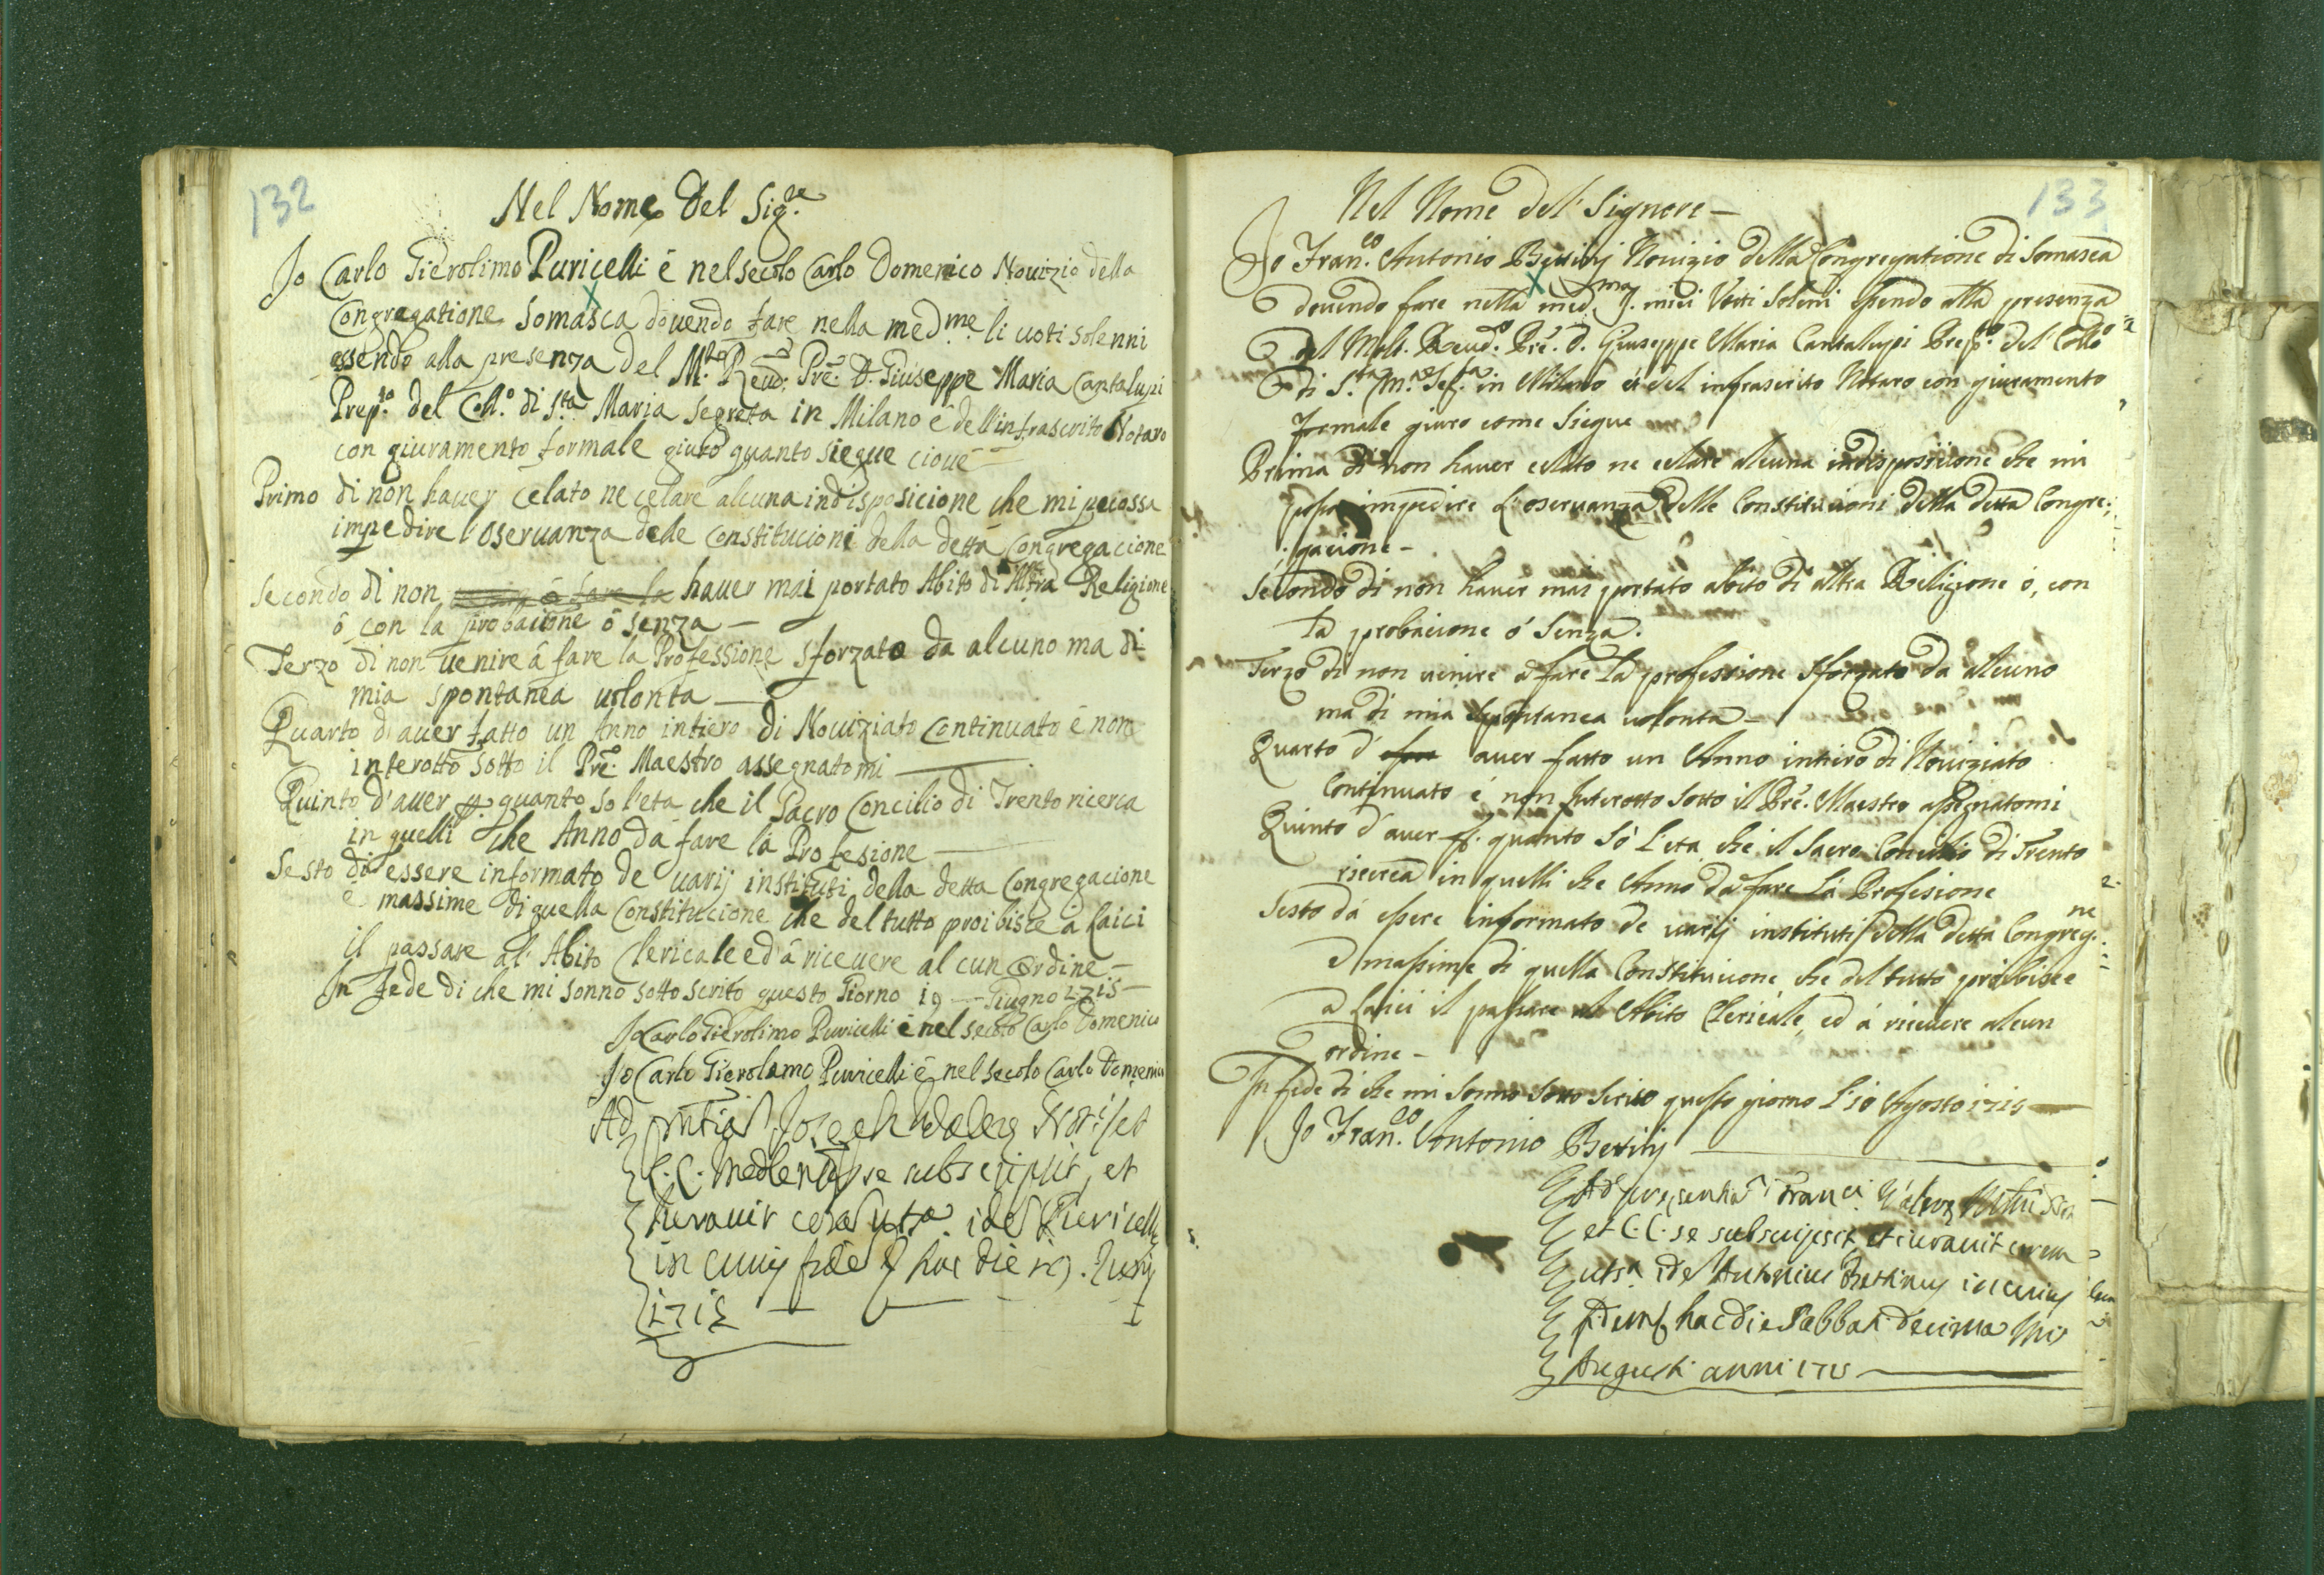 132
Nel Nome Del Sig.re
Jo Carlo Gierolimo Puricelli è nel secolo Carlo Domenico Novizio della
Congregatione Somasca dovendo fare nella med.me li voti solenni
essendo alla presenza del M.to Reud.o Pre. D. Giuseppe Maria Cantalupi
Prep.to del Coll.o di S.ta Maria Segreta in Milano è dell'infrascrito Notaro
con giuramento formale giuro quanto siegue cioué
Primo di non hauer celato ne celare alcuna indisposicione che mi
impedire l'oseruanza delle Constitucioni della detta Congregacione
Secondo di non hauer mai portato Abito di Altra Religione
ó con la probacione ó senza —
Terzo di non uenire â fare la Professione sforzato da alcuno ma di
mia spontanea uolonta —
Quarto d'auer fatto un Anno intiero di Nouiziato Continuato è non
interotto sotto il Pre. Maestro assegnatomi —
Quinto d'auer p. quanto so l'età che il Sacro Concilio di Trento ricerca
in quelli che Anno da fare la Profesione —
Sesto di essere informato de uarij instituti della detta Congregacione
è massime di quella Constitucione che del tutto proibisce a Laici
il passare al Abito Clericale ed á riceuere alcun Ordine —
In fede di che mi sonno sotto scrito questo Giorno 19 — Giugno 1715 —
Jo Carlo Gierolimo Puricelli è nel secolo Carlo Domenico
Jo Carlo Gierolamo Puricelli è nel secolo Carlo Domenico
Ad Joseph
C.C. se subscripsit, et
iurauit
in cuius fidem hac die 19. Junij
1715
133
Nel Nome del Signore —
Jo Fran.co Antonio Bertinj Nouizio della Congregatione di Somasca
douendo fare nella med.ma miei Voti Soleni essendo alla presenza
del Molt. Reud.o Pre. D. Giuseppe Maria Cantalupi Prep.to del Collo
di S.ta M.a Seg.ta in Milano del infrascrito Notaro con giuramento
formale giuro come siegue
Prima di non hauer celato ne celare alcuna indisposicione che mi
possa impedire l'oseruanza delle Constitucioni della detta Congre:
:gacione —
Secondo di non hauer mai portato abito di altra Religione ó, con
la probacione ó senza.
Terzo di non uenire á fare la professione sforzato da alcuno
ma di mia spontanea uolonta —
Quarto d' auer fatto un Anno intiero di Nouiziato
Continuato é non Interotto sotto il Pre. Maestro assegnatomi
Quinto d'auer p. quanto só l'eta che il Sacro Concilio di Trento
ricerca in quelli che Anno da fare la Profesione
Sesto dá essere informato de uarij instituti della detta Congreg.ne
e massime di quella Constitucione che del tutto proibisce
a Laici il passare al Abito Clericale, ed á riceuere alcun
ordine —
In fede di che mi sonno sotto scrito questo giorno l'10 Agosto 1715 —
Jo Fran.co Antonio Bertinj —
Ad presentia
et CC. se subscripsit et iurauit
Antonius Bertinus in cuius
fidem hac die Sabbati decima
Augusti anni 1715 —